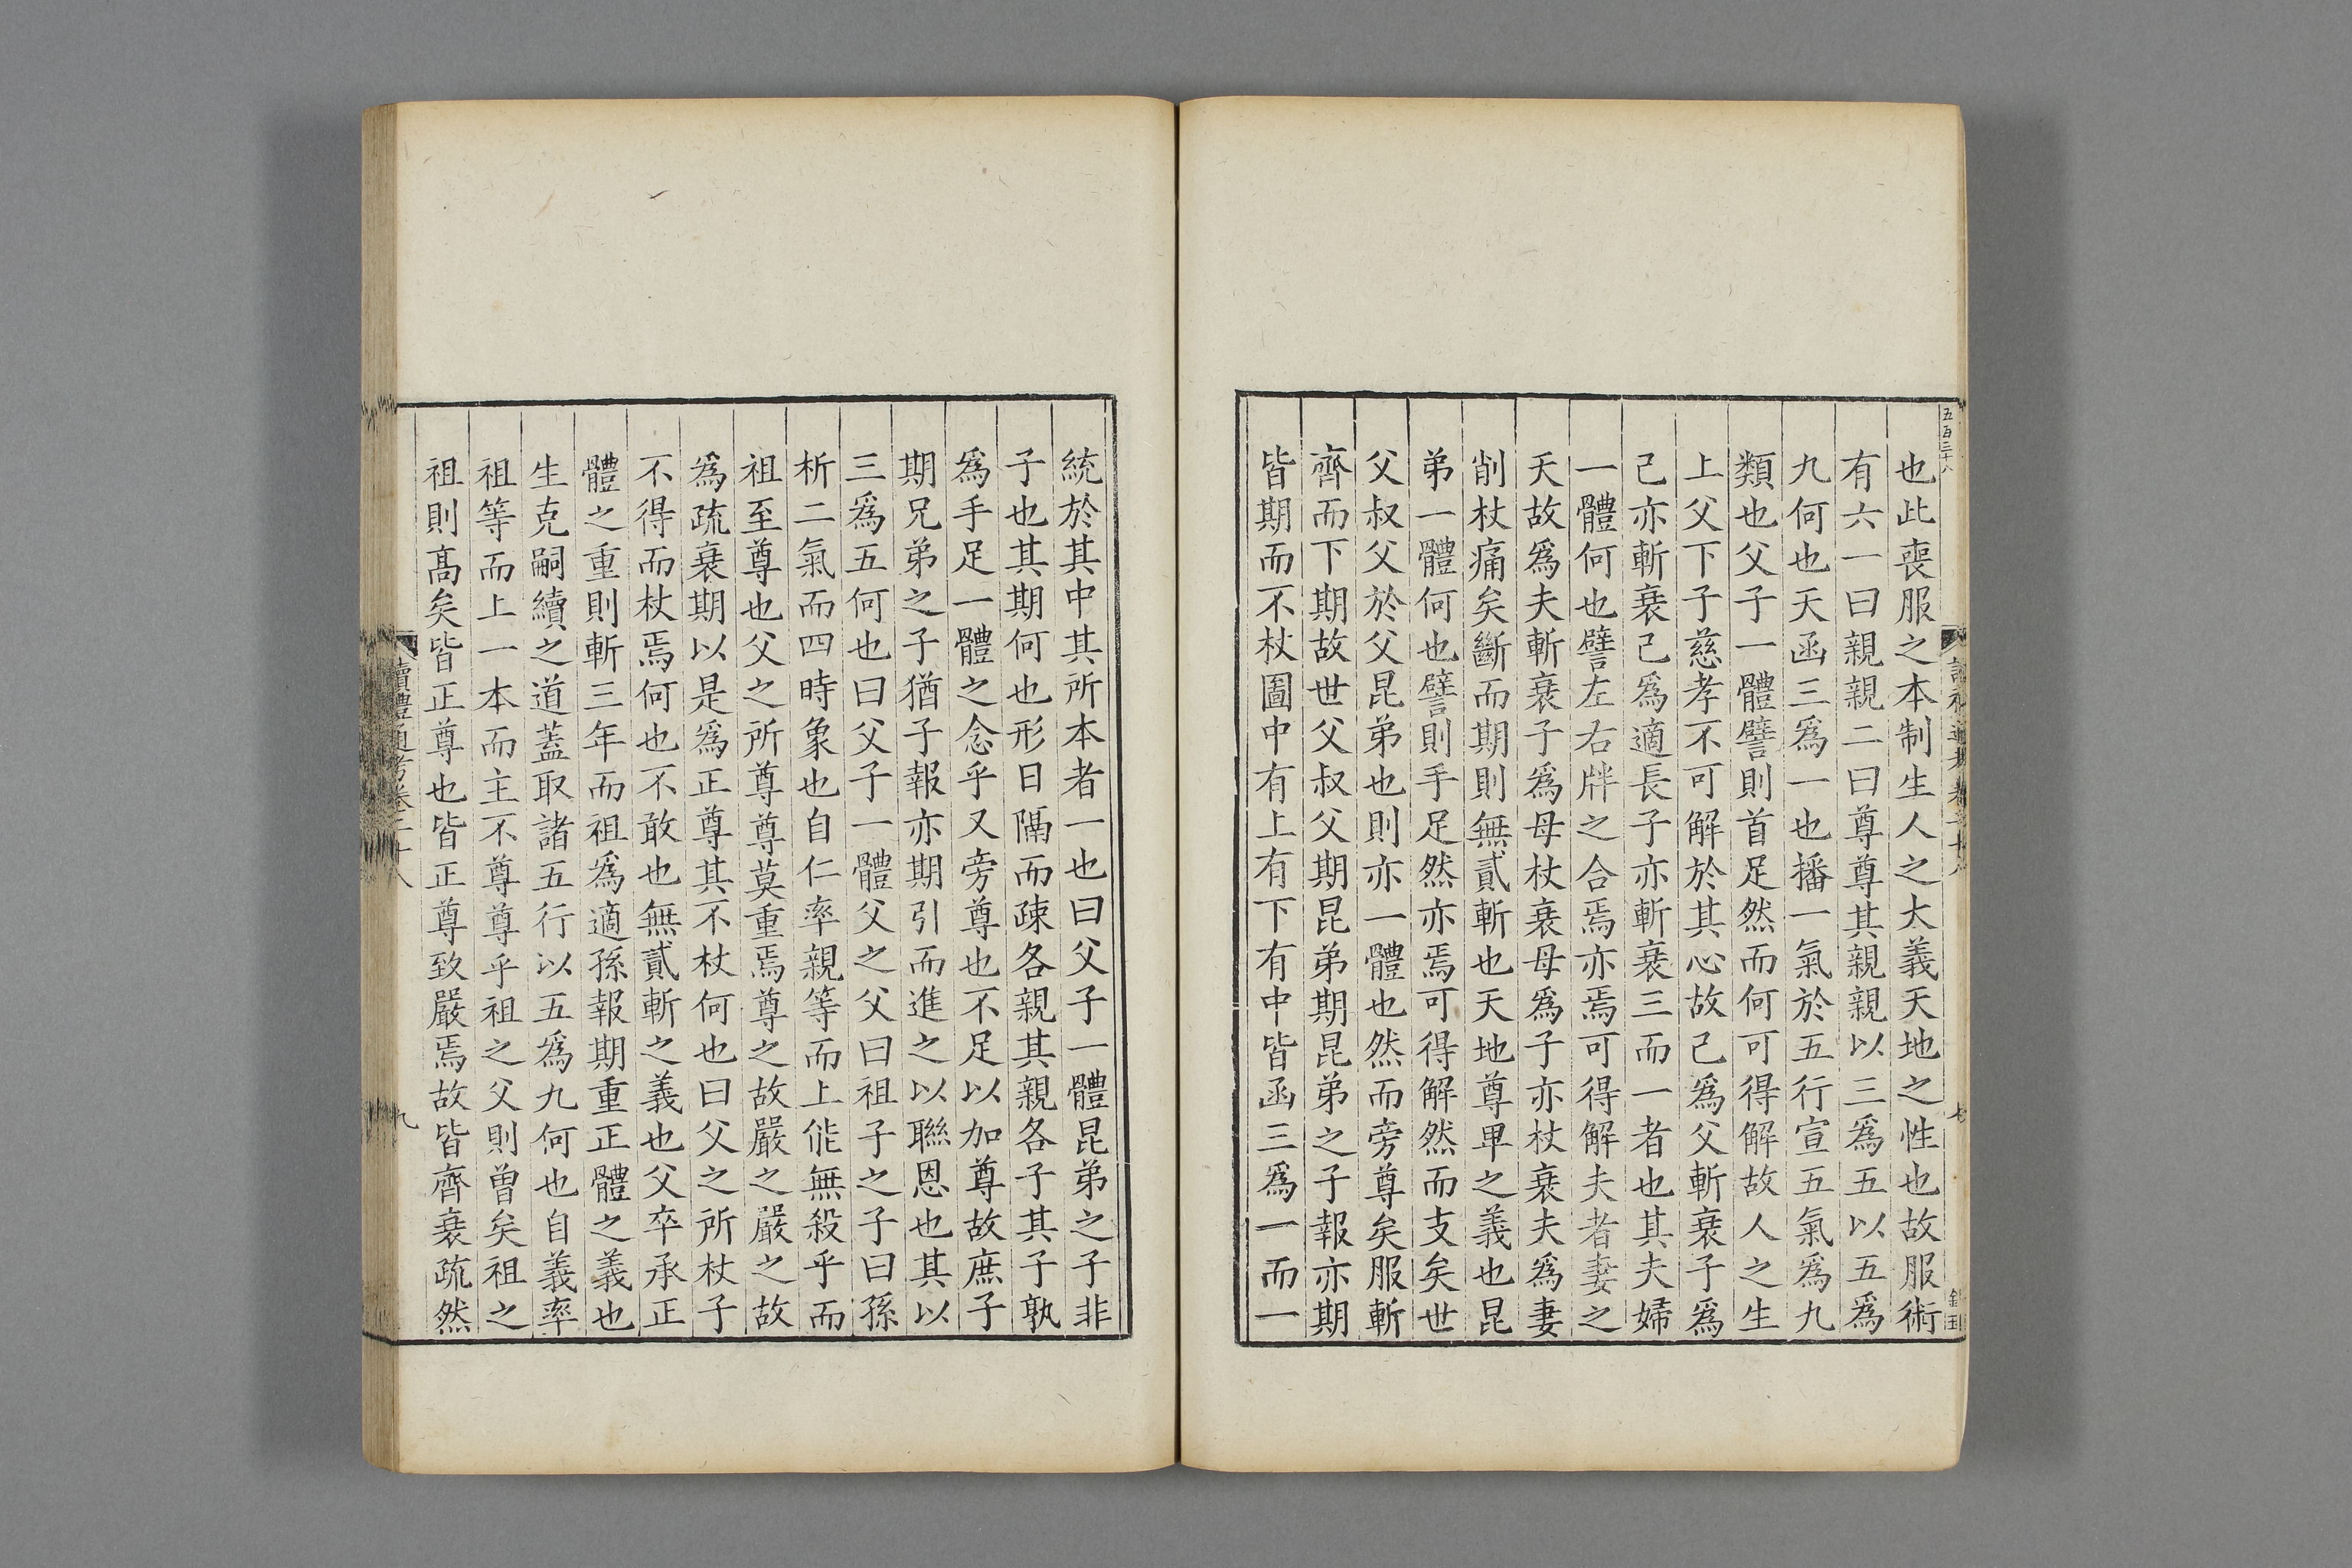 五百三十八
也此喪服之本制生人之大義天地之性也故服術
有六一曰親親二曰尊尊其親親以三爲五以五爲
九何也天函三爲一也播一氣於五行宣五氣爲九
類也父子一體譬則首足然而何可得解故人之生
上父下子慈孝不可解於其心故己爲父斬衰子爲
己亦斬衰己爲適長子亦斬衰三而一者也其夫婦
一體何也譬左右牉之合焉亦焉可得解夫者妻之
天故爲夫斬衰子爲母杖衰母爲子亦杖衰夫爲妻
削杖痛矣斷而期則無貳斬也天地尊卑之義也昆
弟一體何也譬則手足然亦焉可得解然而支矣世
父叔父於父昆弟也則亦一體也然而旁尊矣服斬
齊而下期故世父叔父期昆弟期昆弟之子報亦期
皆期而不杖圖中有上有下有中皆函三爲一而一
統於其中其所本者一也曰父子一體昆弟之子非
子也其期何也形日隔而疎各親其親各子其子孰
爲手足一體之念乎又旁尊也不足以加尊故庶子
期兄弟之子猶子報亦期引而進之以聯恩也其以
三爲五何也曰父子一體父之父曰祖子之子曰孫
析二氣而四時象也自仁率親等而上能無殺乎而
祖至尊也父之所尊尊莫重焉尊之故嚴之嚴之故
爲疏衰期以是爲正尊其不杖何也曰父之所杖子
不得而杖焉何也不敢也無貳斬之義也父卒承正
體之重則斬三年而祖爲適孫報期重正體之義也
生克嗣續之道蓋取諸五行以五爲九何也自義率
祖等而上一本而主不尊尊乎祖之父則曾矣祖之
祖則髙矣皆正尊也皆正尊致嚴焉故皆齊衰疏然
讀禮通考卷二十八
九